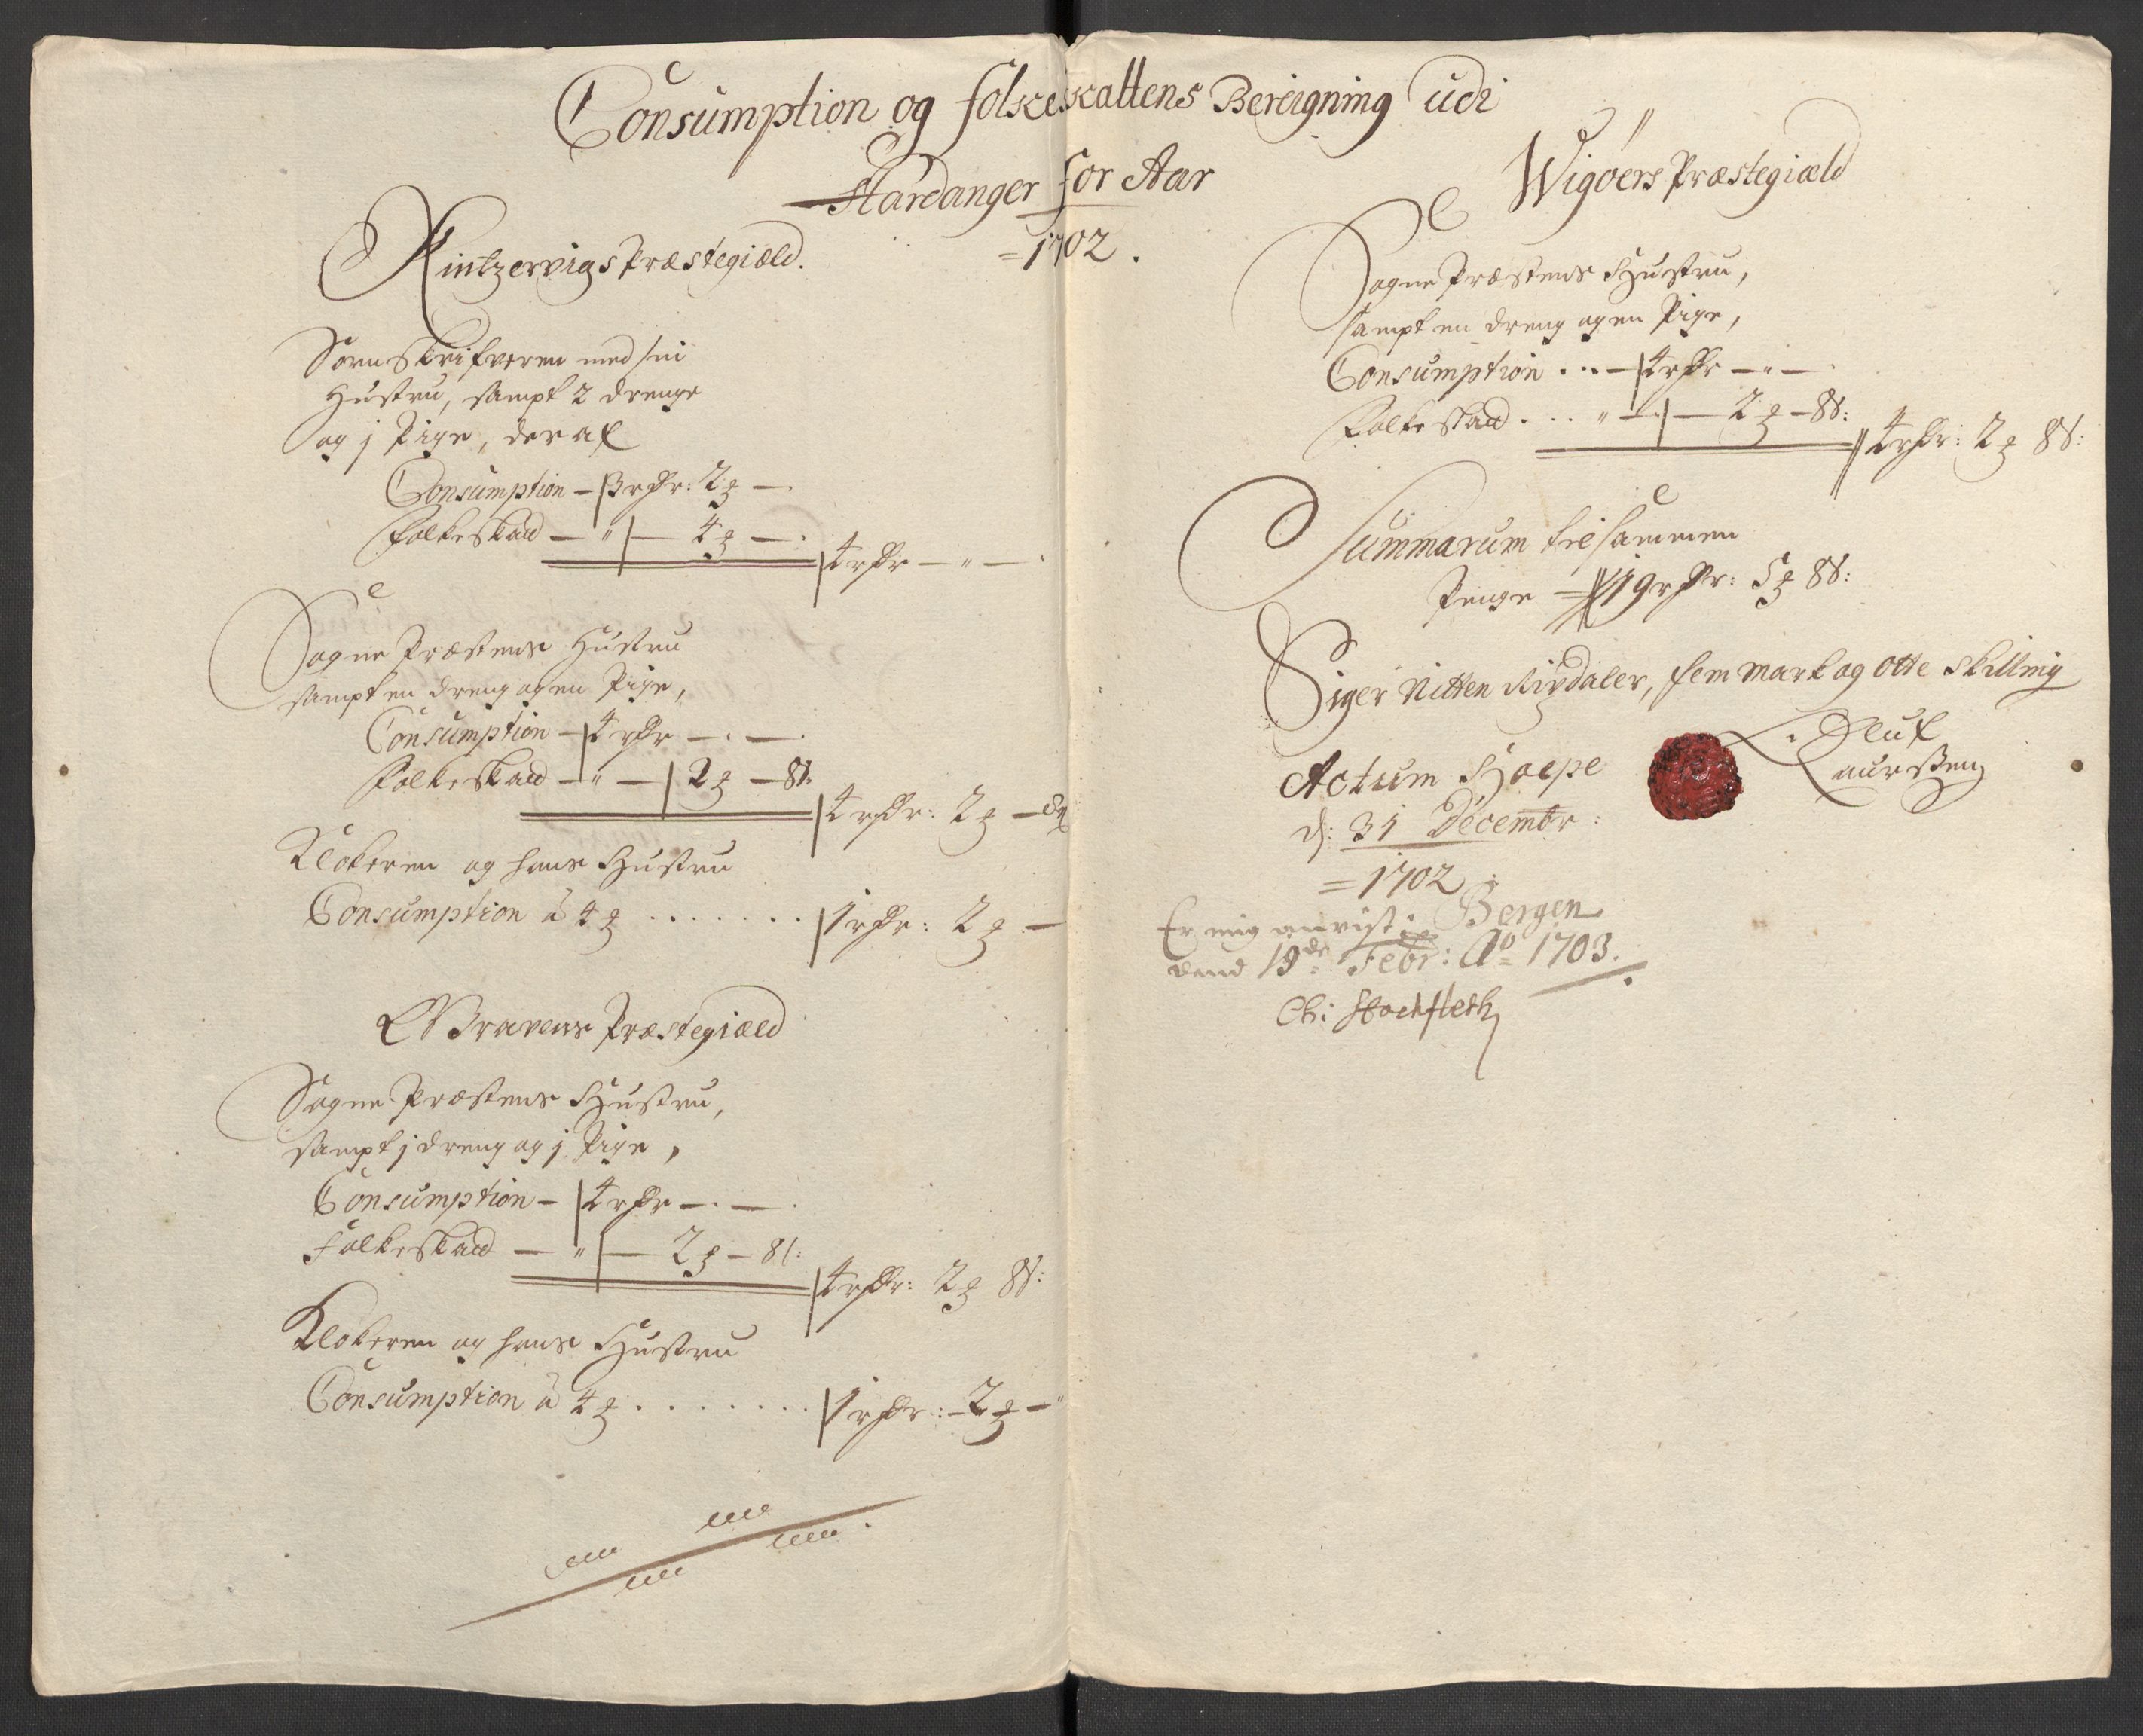 Consumption og folkeskattens Bereigning udi
Hardanger for Aar
=1702.
Kintzervigs Præstegiæld.
Sorenskrifveren med sin
Hustru, sampt 2 drenge
og j Pige, der af
Consumption – 3 rdr: 2 ꝭ –
Folkeskatt – " – 4 ꝭ – .
4 rdr – " –
Sogne Præstens Hustru
sampt en dreng og en Pige,
Consumption – 4 rdr – . –
Folkeskatt – " – 2 ꝭ – 8 s:
4 rdr: 2 ꝭ – 8 s
Klokeren og hans Hustru
Consumption à 4 ꝭ . . . . . . . 1 rdr: 2 ꝭ –
Gravens Præstegiæld
Sogne Præstens Hustru,
sampt j dreng og j Pige,
Consumption – 4 rdr – . –
Folkeskatt – " – 2 ꝭ – 8 s:
4 rdr: 2 ꝭ 8 s:
Klokeren og hans Hustru
Consumption à 4 ꝭ . . . . . . . . 1 rdr: – 2 ꝭ – "
Wigøers Præstegiæld
Sogne Præstens Hustru,
sampt en dreng og en Pige,
Consumption . . . – 4 rdr – " –
Folkeskatt . . . " – – 2 ꝭ – 8 s:
4 rdr: 2 ꝭ 8 s:
Summarum tilsammen
Penge = 19 rdr: 5 ꝭ 8 s:
Siger Nitten Rixdaler, fem mark og otte skilling
Actum
d: 31 Decembr:
=1702
Oluf
Laurssen
Er mig anvist i Bergen
dend 19de Febr: Ao 1703.
Ch: Stockfleth